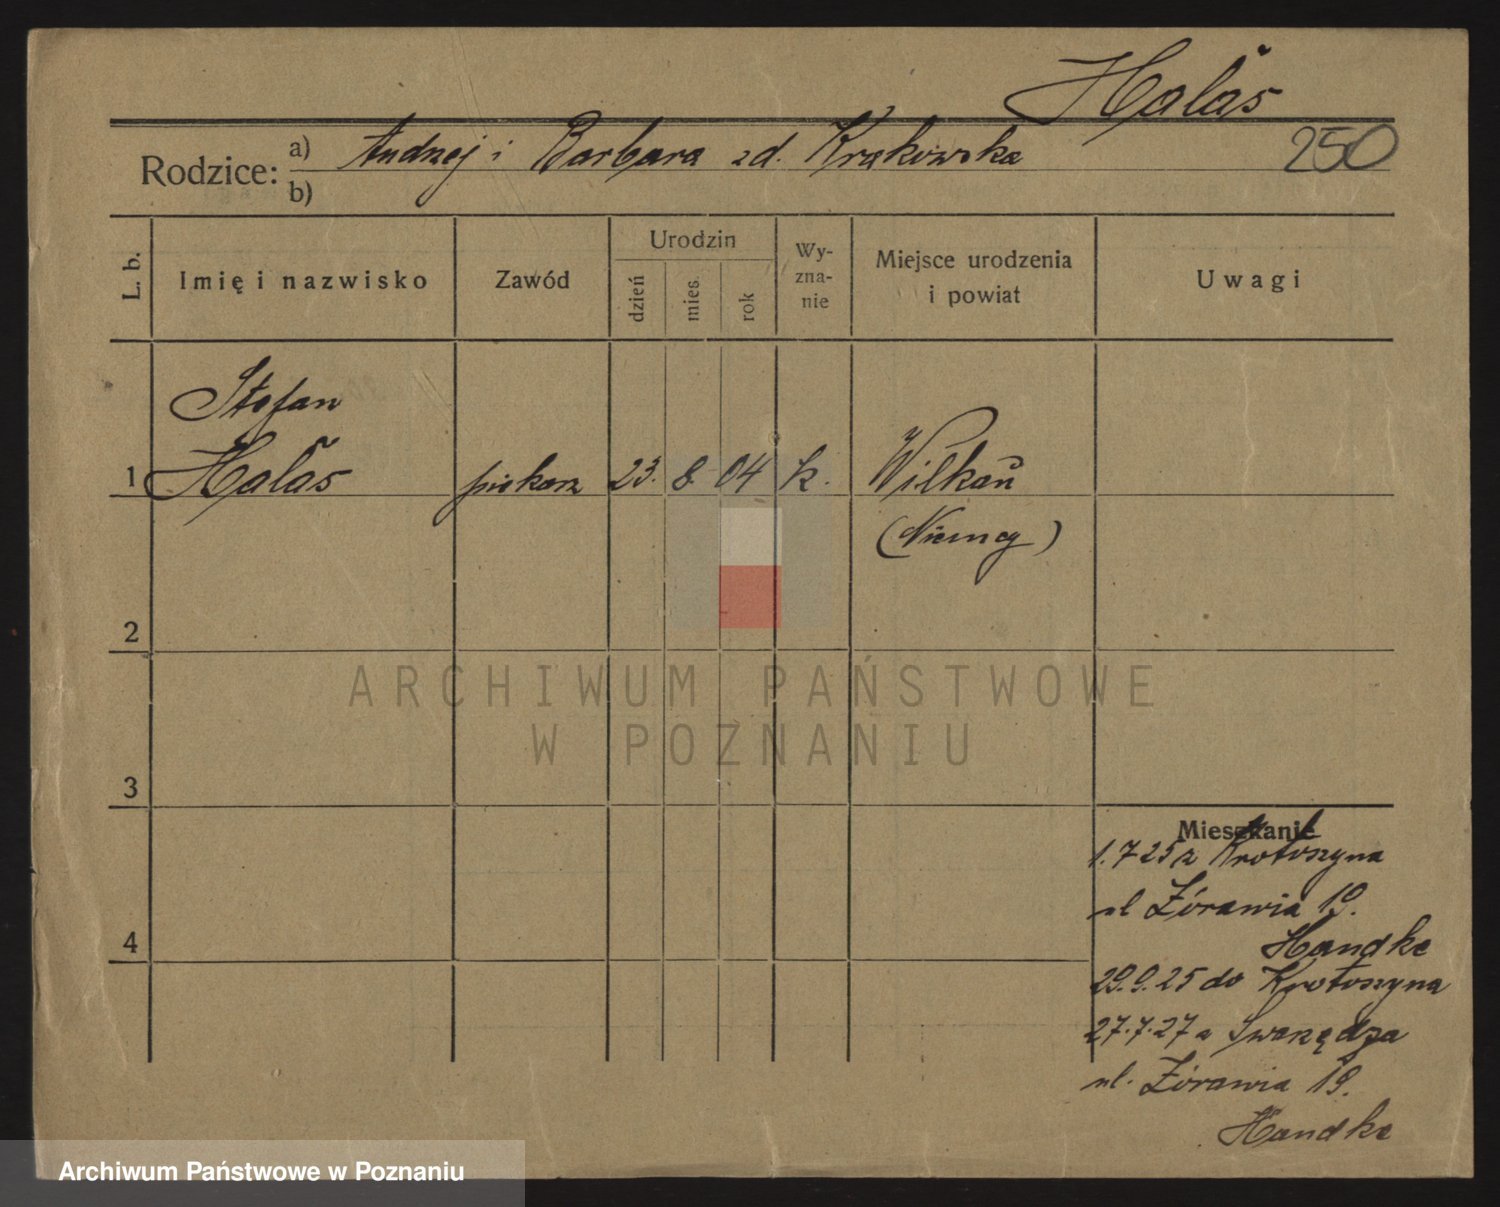 Halaś
Rodzice: a) Andrzej i Barbara zd. Krakowska 250
b)
L. b.
Imię i nazwisko
Zawód
Urodzin
dzień
mies.
rok
Wy-
zna-
nie
Miejsce urodzenia
i powiat
Uwagi
Stefan
1 Halaś piekarz 23. 8. 04 k. Wilkau
(Niemcy)
2
ARCHIWUM PAŃSTWOWE
W POZNANIU
3
Mieszkanie
1.7 25 z Krotoszyna
ul Żórawia 19.
Handke
4
29.9.25 do Krotoszyna
27.7.27 z Swarzędza
ul. Żórawia 19.
Handke
Archiwum Państwowe w Poznaniu